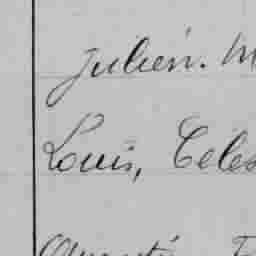 Julien. M
Louis, Celes